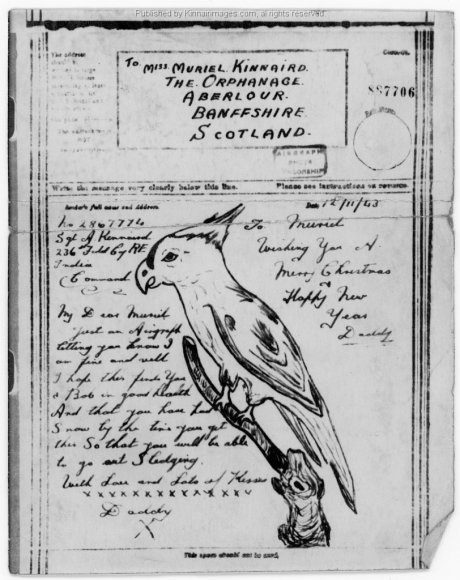 Published by Kinnairdimages.com, all rights reserved.
The address
To Miss Muriel Kinnaird.
The Orphanage.
Aberlour.
Banffshire
Scotland.
887706
AIRGRAPH
Write the message very clearly below this line.
Please see instructions on reverse.
Sender's full name and Address
Date 12/11/43
No 2867774
Sgt A Kinnaird
236 Fld Coy RE
India
Command
To Muriel
Wishing You A
Merry Christmas
Happy New
Year
Daddy
My Dear Muriel
Just an Airgraph
letting you know I
am fine and well
I hope this finds You
& Bob in good health
And that you have had
Snow by the time you get
this So that you will be able
to go out Sledging.
With Love and Lots of Kisses
x x x x x x x x x x x x x
Daddy
X
This space should not be used.